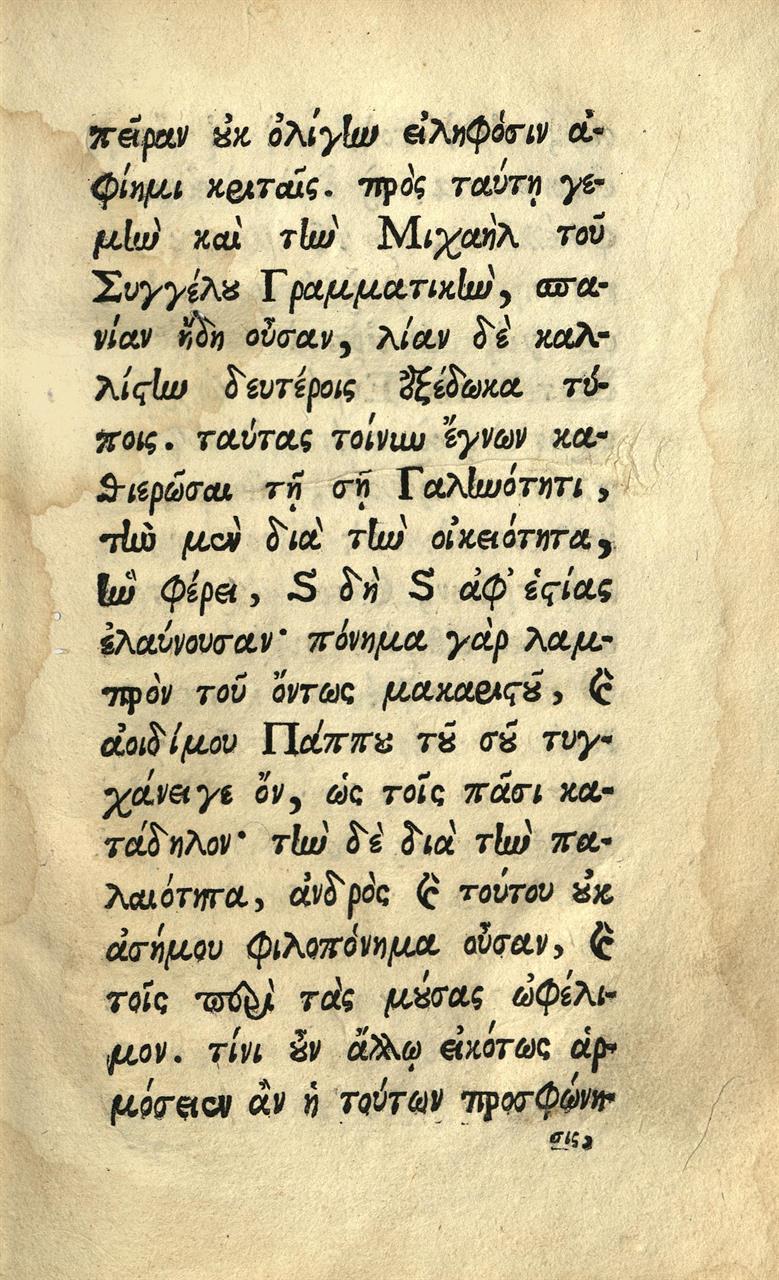 πεῖραν ȣκ ὀλίγην εἰληφόσιν ἀ-
φίημι κριταῖς. πρὸς ταύτῃ γε-
μὴν καὶ τὴν Μιχαὴλ τοῦ
Συγγέλȣ Γραμματικὴν, σπα-
νίαν ἤδη οὖσαν, λίαν δὲ καλ-
λίϛην δευτέροις ἐξέδωκα τύ-
ποις. ταύτας τοίνυν ἔγνων κα-
θιερῶσαι τῇ σῇ Γαληνότητι,
τὴν μὲν διὰ τὴν οἰκειότητα,
ἣν φέρει, Ϛ δὴ Ϛ ἀφ' ἑϛίας
ἐλαύνουσαν· πόνημα γὰρ λαμ-
πρὸν τοῦ ὄντως μακαριϛȣ͂, ϗ̀
ἀοιδίμου Πάππȣ τȣ͂ σȣ͂ τυγ-
χάνει γε ὄν, ὡς τοῖς πᾶσι κα-
τάδηλον· τὴν δὲ διὰ τὴν πα-
λαιότητα, ἀνδρὸς ϗ̀ τούτου ȣκ
ἀσήμου φιλοπόνημα οὖσαν, ϗ̀
τοῖς περὶ τὰς μȣ́σας ὠφέλι-
μον. τίνι ȣ̓͂ν ἄλλῳ εἰκότως ἁρ-
μόσειεν ἂν ἡ τούτων προσφώνη-
σις,